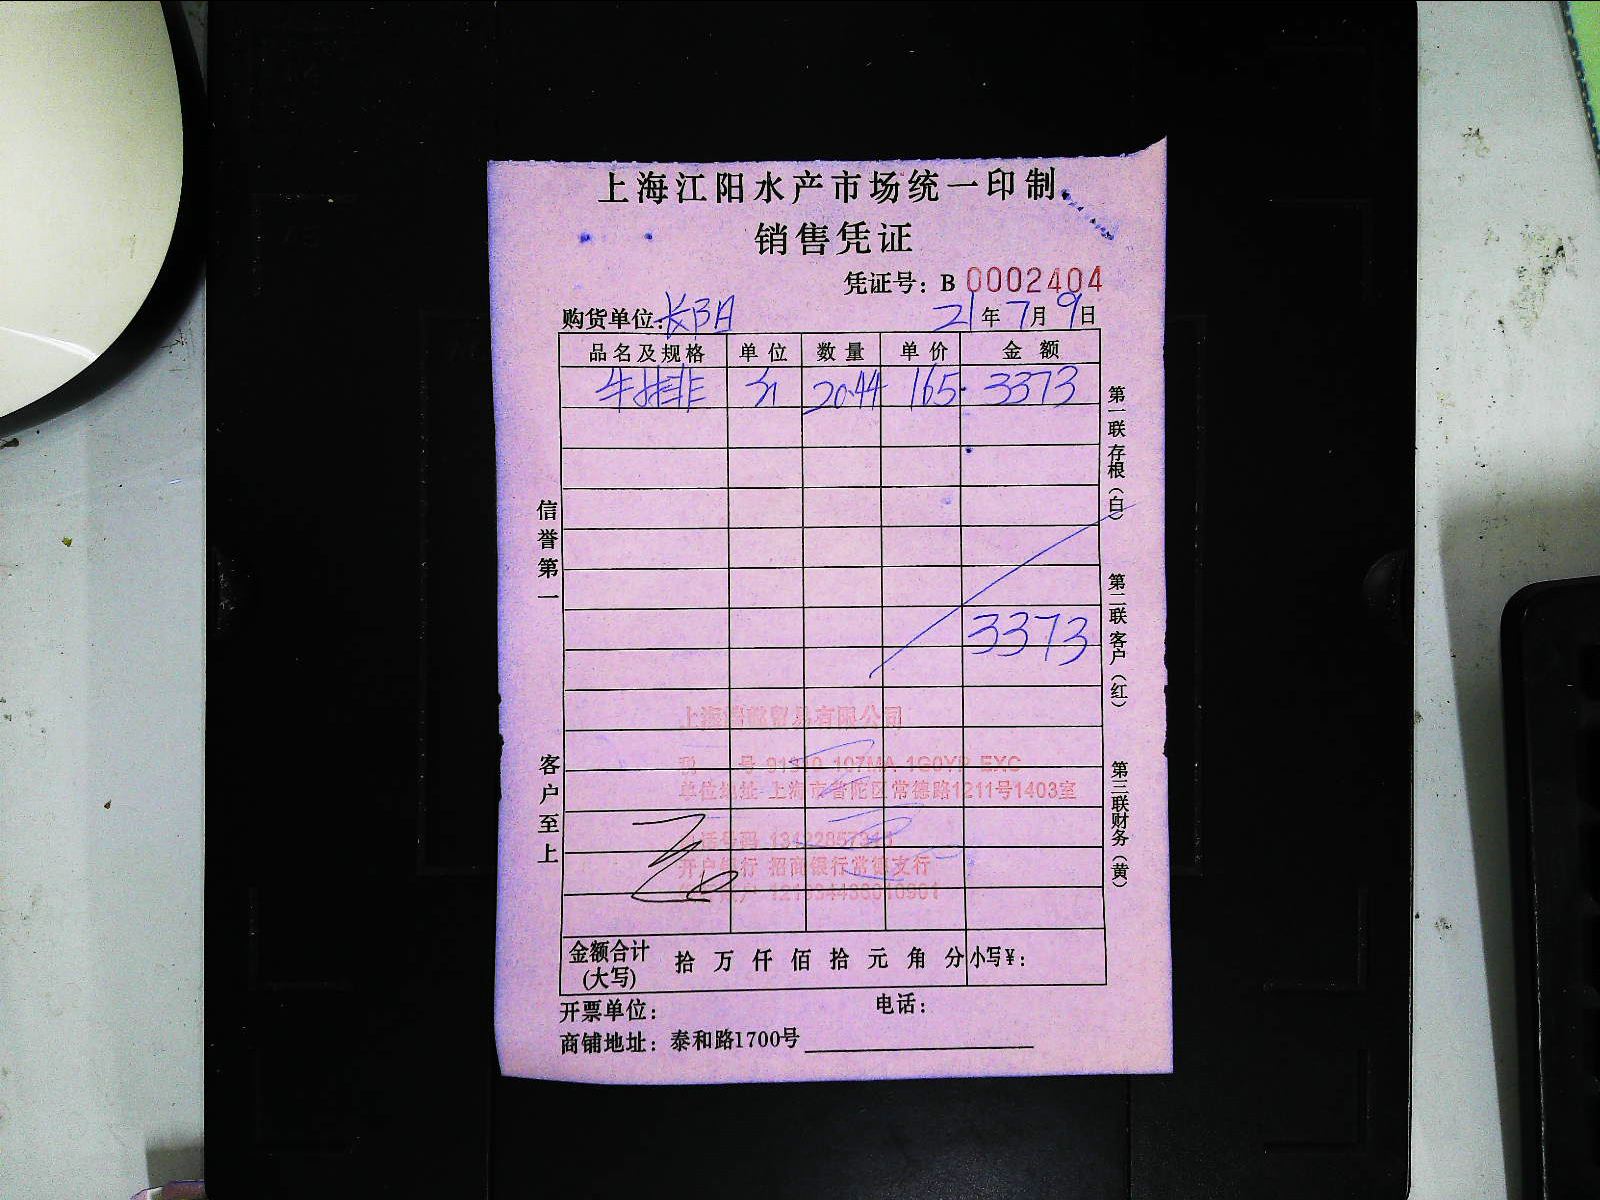 上海江阳水产市场统一印制
销售凭证
凭证号：B 0002404
购货单位：长阳 21年7月9日
品名及规格 单位 数量 单价 金额
牛排 20.44 165. 3373
3373
信誉第一
客户至上
第一联存根（白）
第二联客户（红）
第三联财务（黄）
贸易有限公司
单位地址 上海市普陀区常德路1211号1403室
开户银行 招商银行常德支行
金额合计(大写) 拾 万 仟 佰 拾 元 角 分 小写¥：
开票单位： 电话：
商铺地址：泰和路1700号